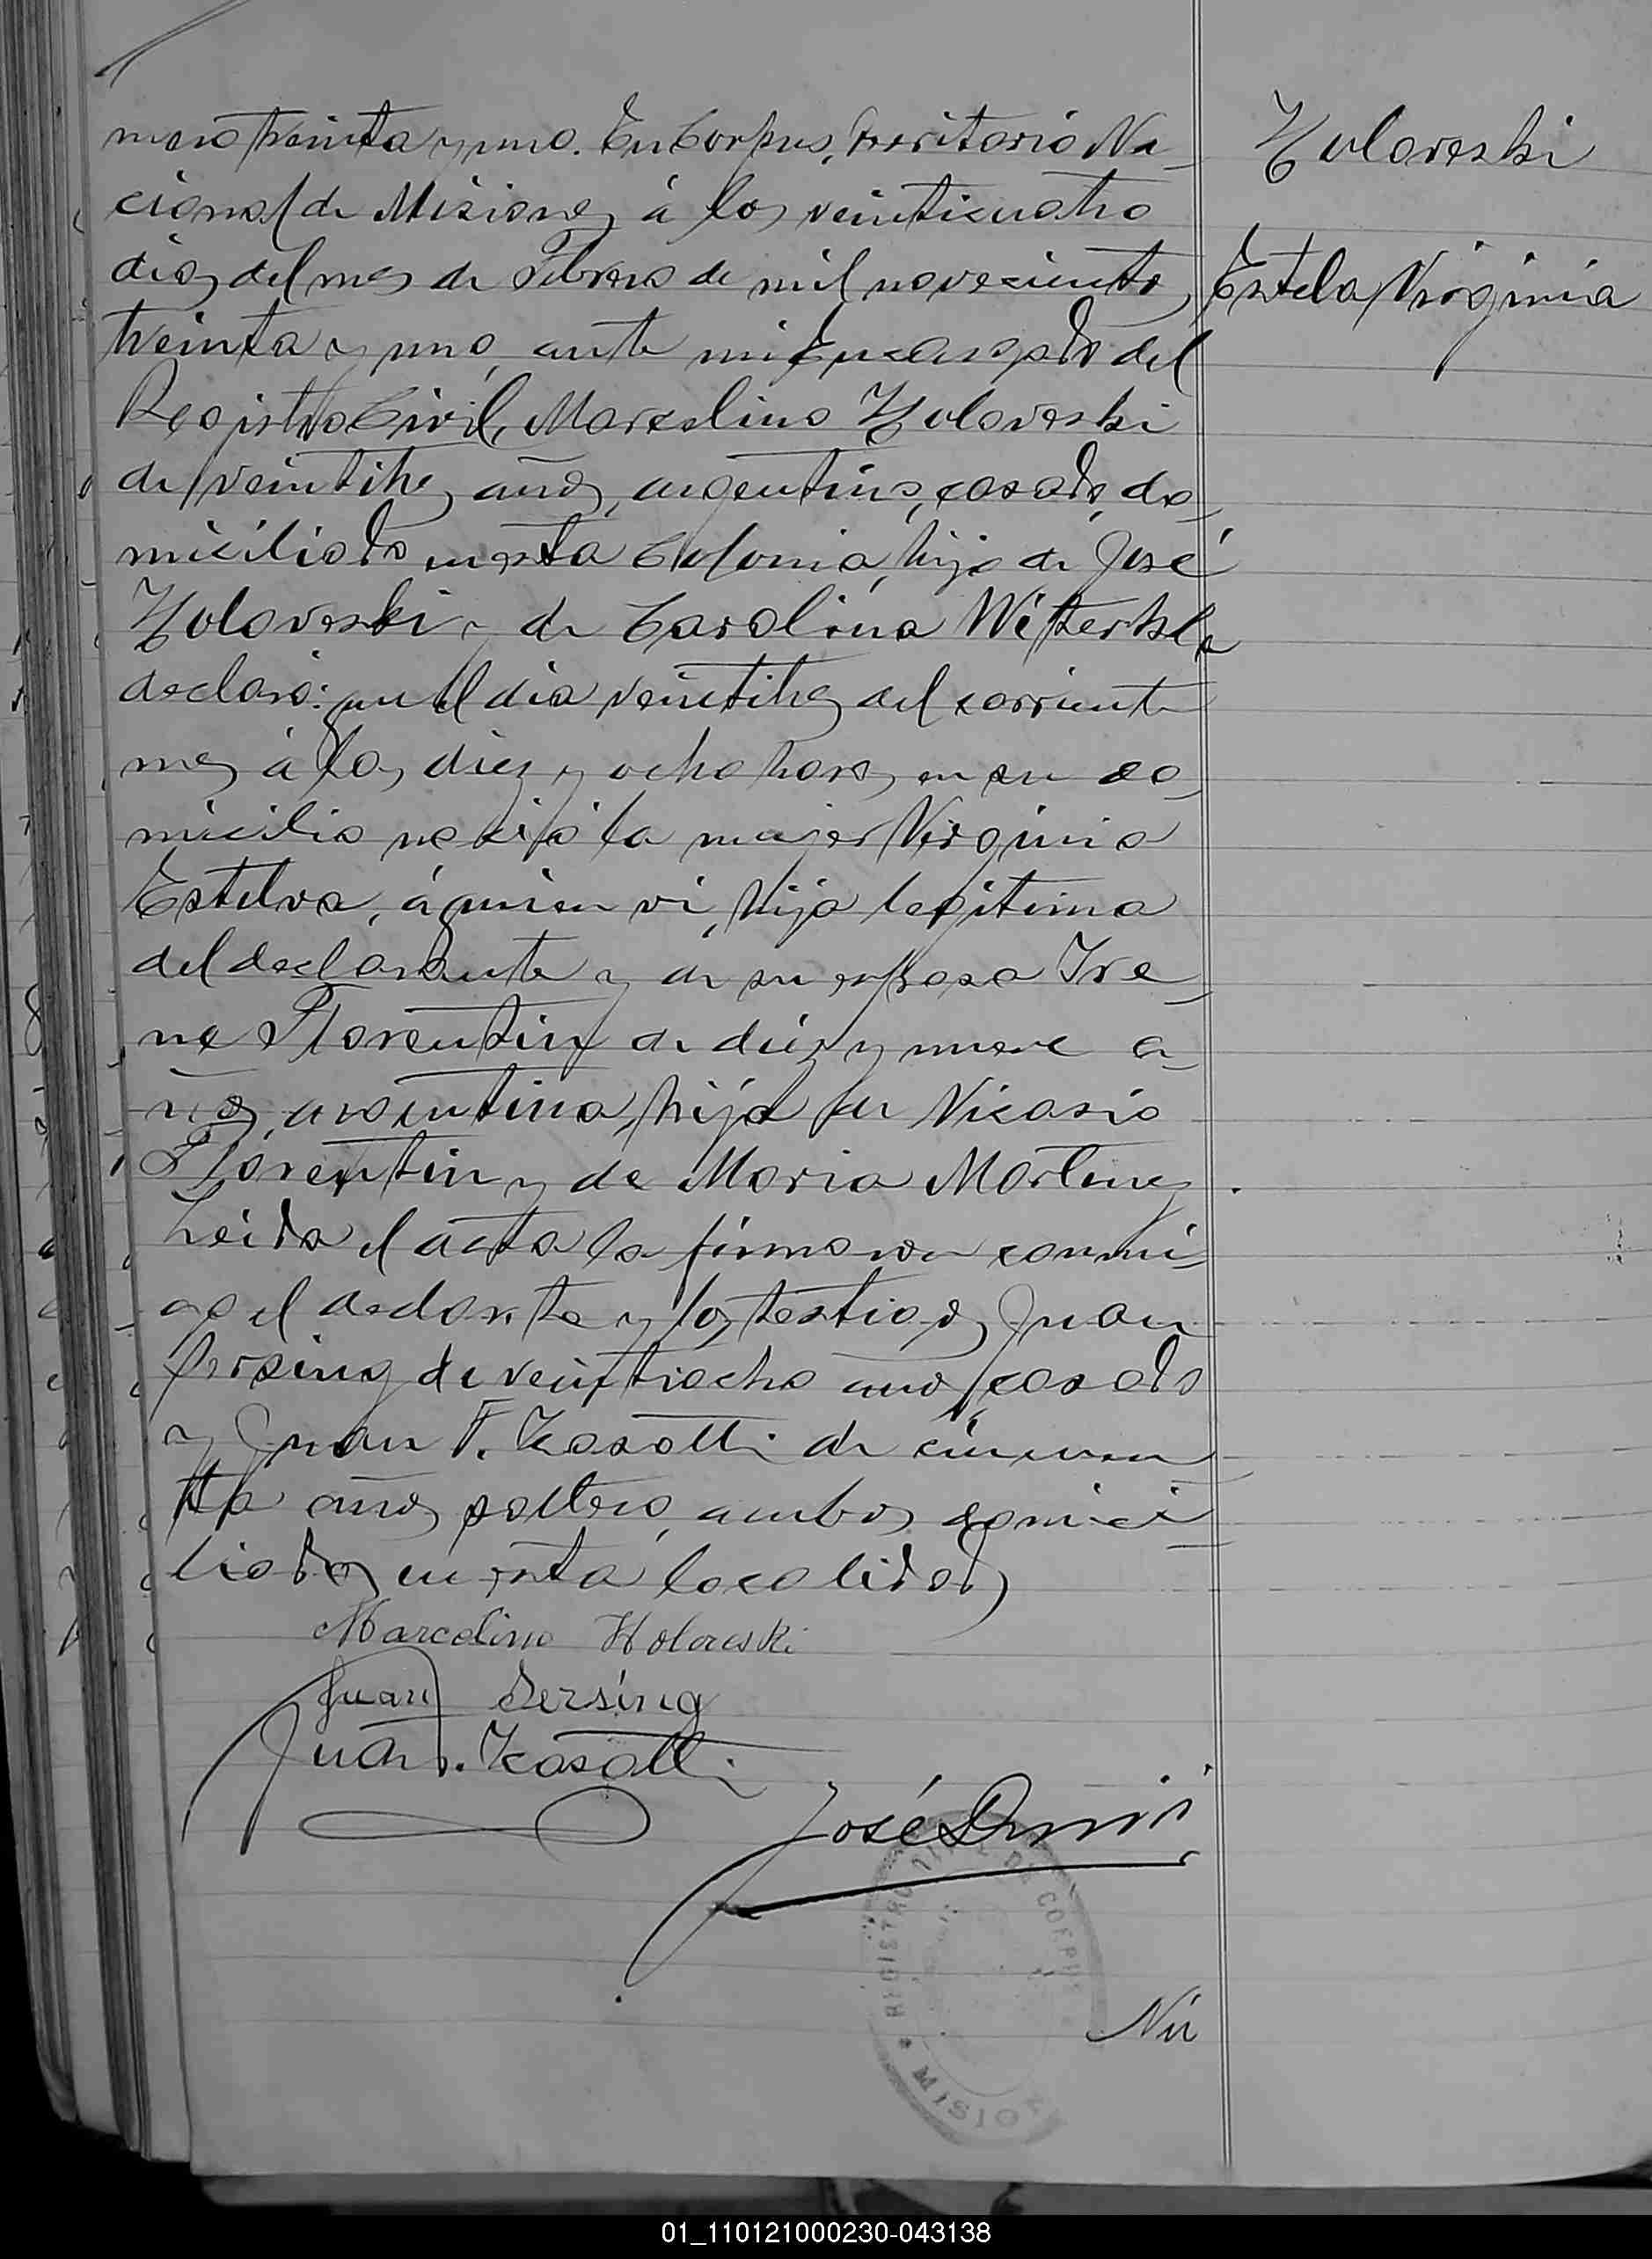 mero treinta y uno. En Corpus, Territorio Na-
cional de Misiones á los veinticuatro
dias del mes de Febrero de mil novecientos
treinta y uno, ante mi Encargado del
Registro Civil, Marcelino Holoveski
de veintitres años, argentino, casado, do-
miciliado en esta Colonia, hijo de José
Holoveski y de Carolina
declaró: que el dia veintitres del corriente
mes á las diez y ocho horas en su do-
micilio nació la mujer Virginia
Estelva, á quien vi, hija legitima
del declarante y de su esposa Ire-
ne Florentin de diez y nueve a-
ños, argentina, hija de Nicasio
Florentin y de Maria Martinez.
Leida el acta la firmaron conmi-
go el declarante y los testigos Juan
Persing de veintiocho años, casado
y Juan F. Kasotti de cincuen
ta años, soltero, ambos domici
liados en esta localidad
Marcelino Holoveski
Juan Dersing
Juan F. Kasotti
José
REGISTRO CIVIL DE CORPUS
MISIONES
Nú
Holoveski
Estela Virginia
01_110121000230-043138